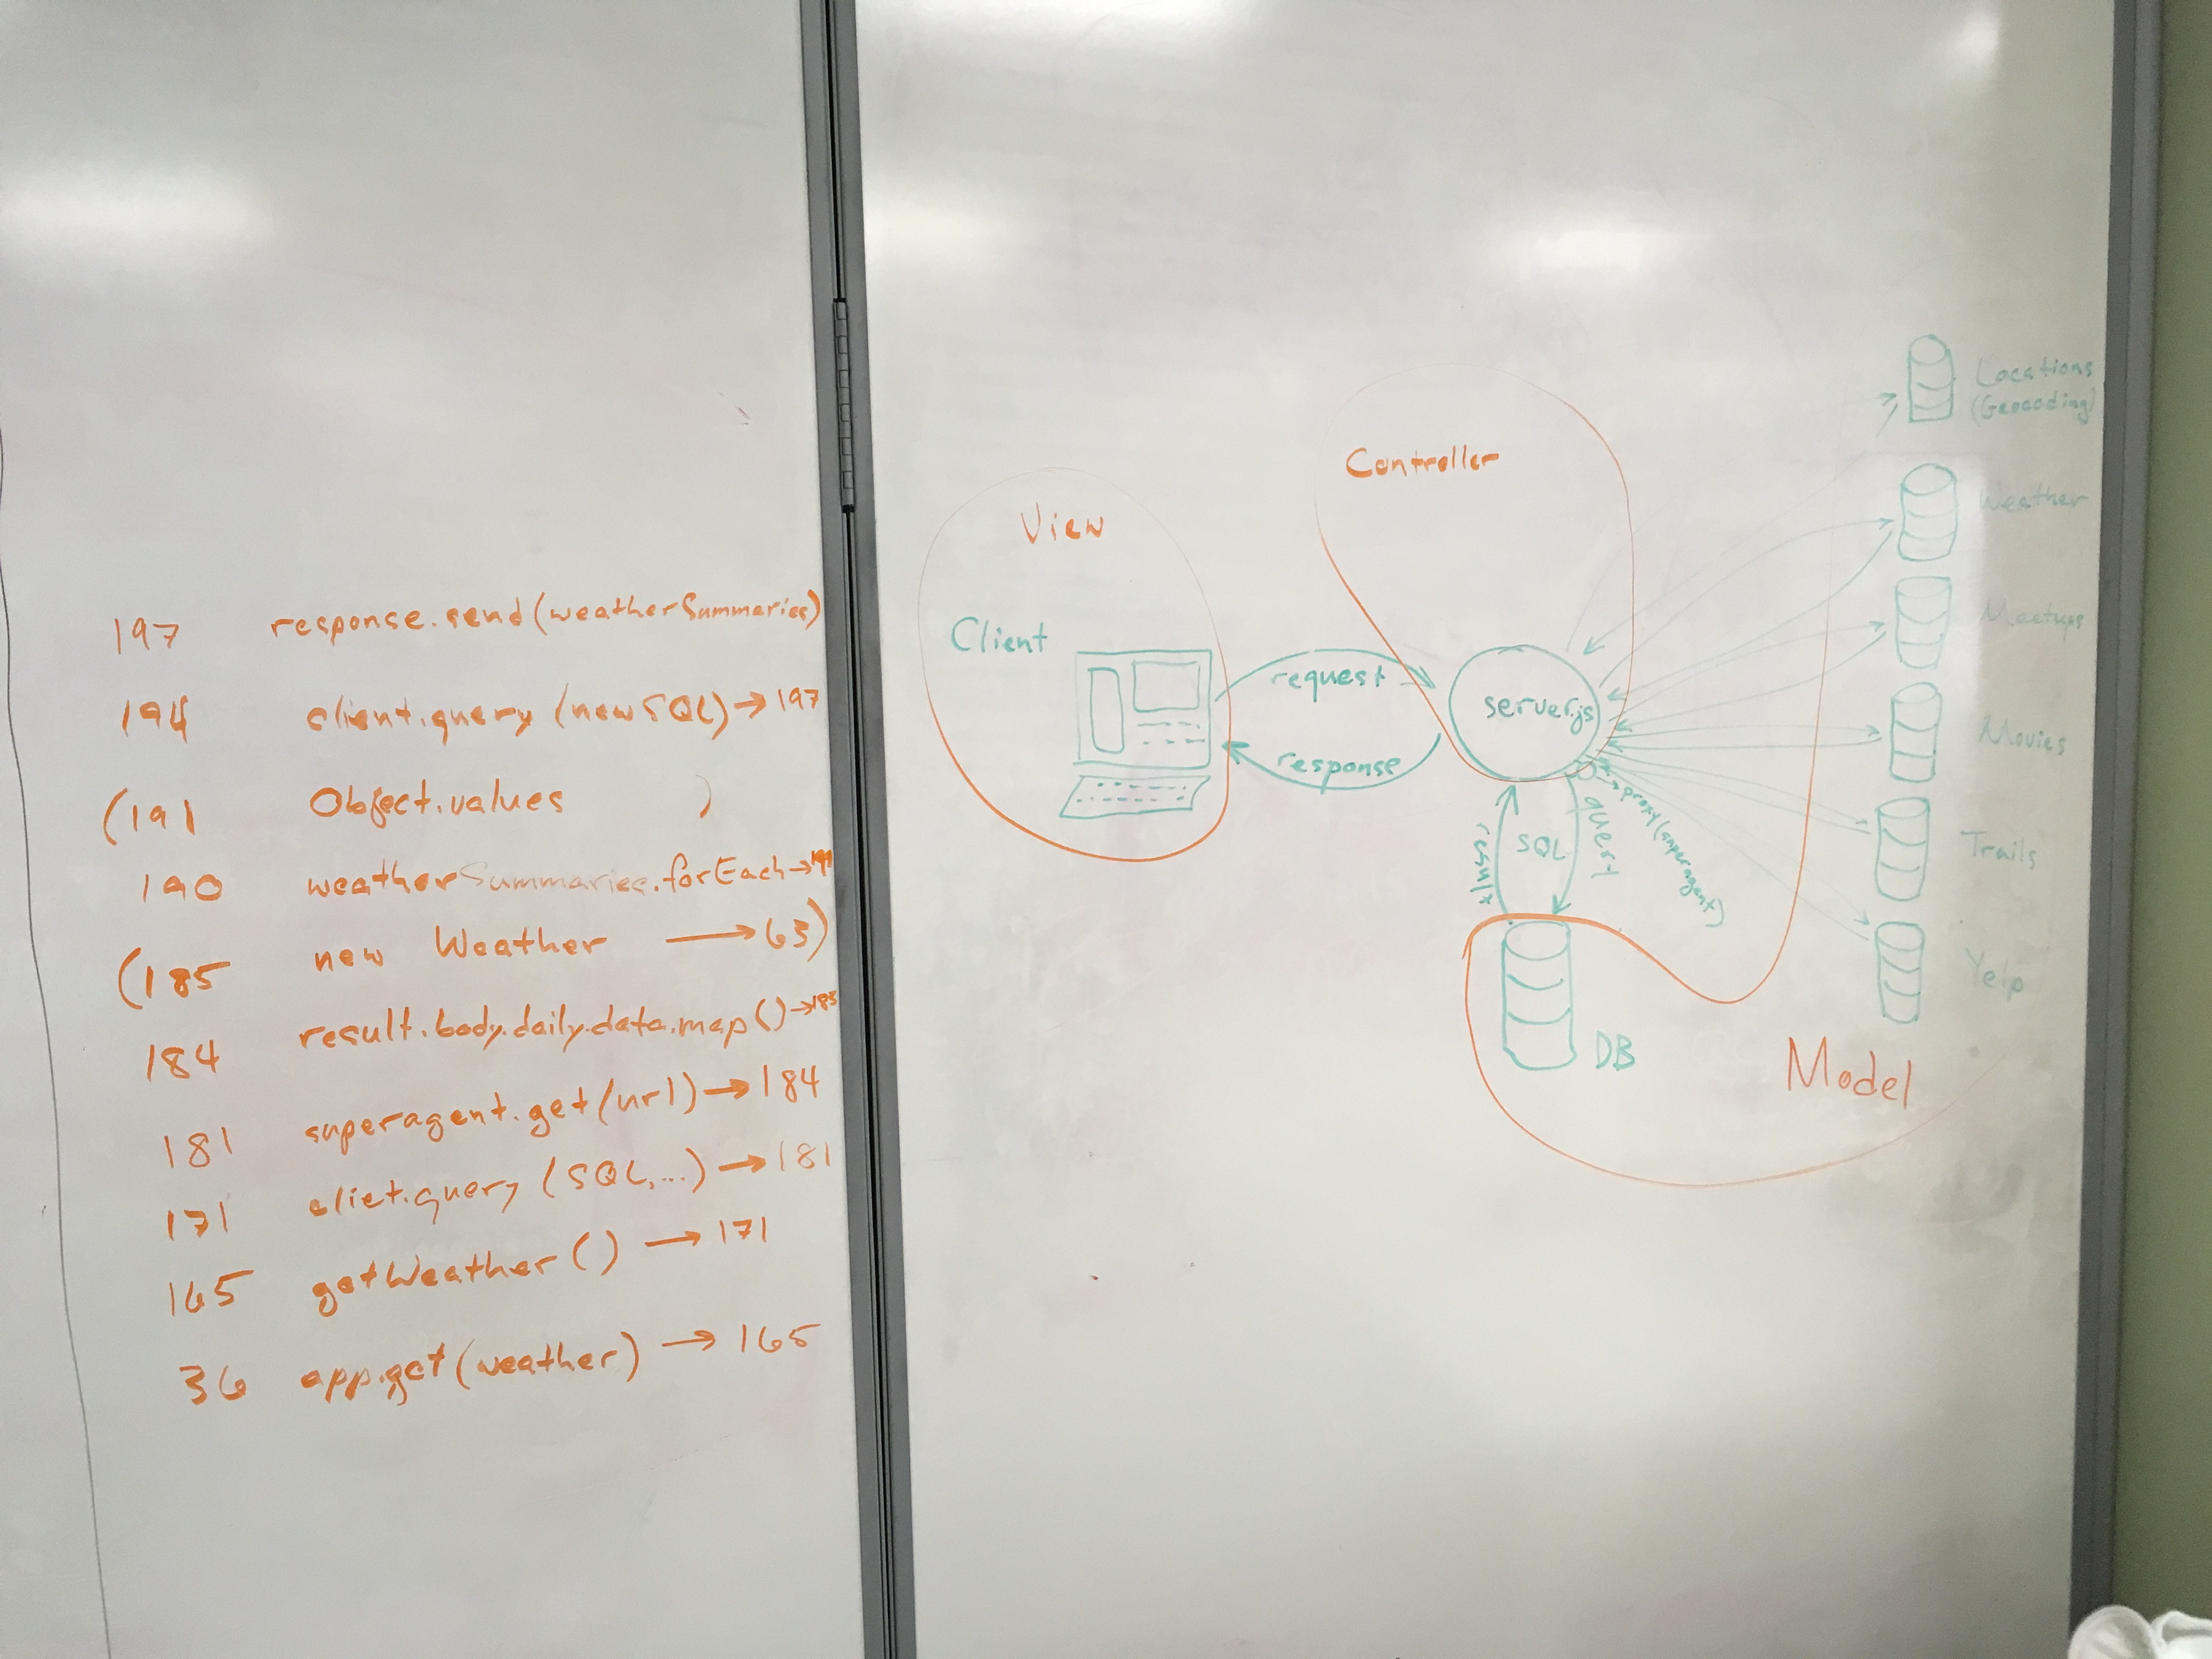 197 response.send(weatherSummaries)
194 client.query (newSQL) → 197
(191 Object.values )
190 weatherSummaries.forEach →
(185 new Weather → 63)
184 result.body.daily.data.map() → 185
181 superagent.get(url) → 184
171 cliet.query (SQL,...) → 181
165 getWeather() → 171
36 app.get(weather) → 165
View
Client
request
response
Controller
server.js
result
SQL
query
proxy (superagent)
DB
Model
Locations
(Geocoding)
Weather
Meetups
Movies
Trails
Yelp